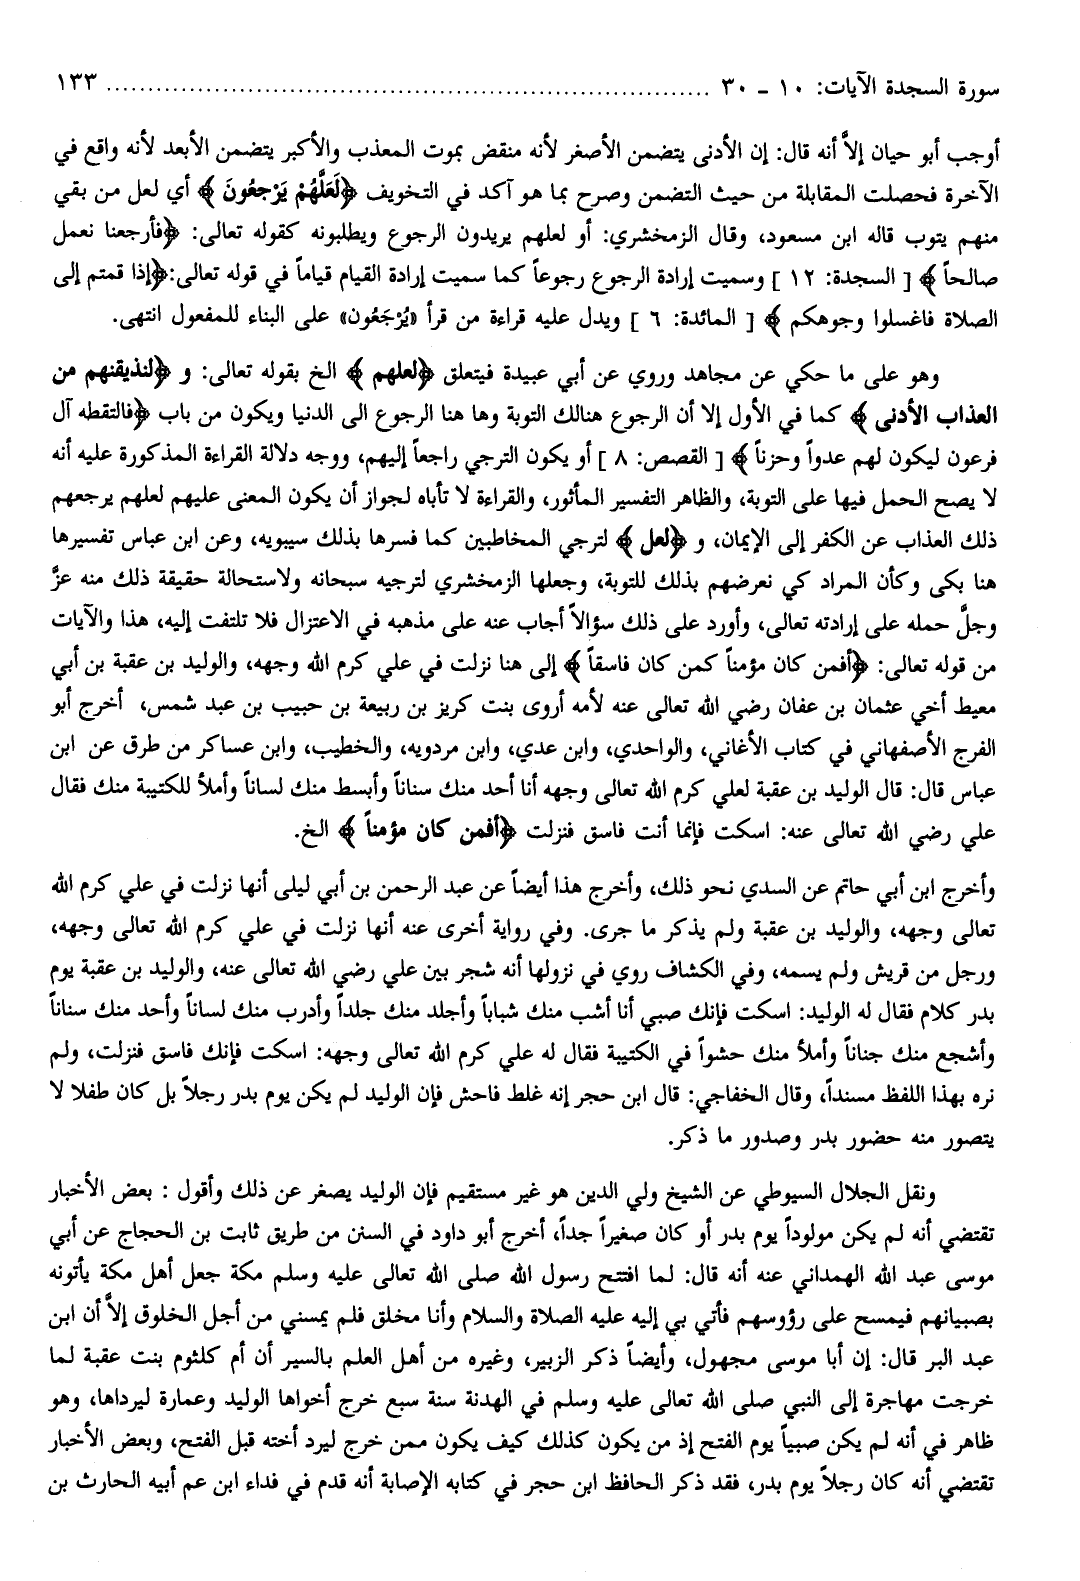 سورة السجدة الآيات: ١٠ - ٣٠ ................................................ ١٣٣
أوجب أبو حيان إلاَّ أنه قال: إن الأدنى يتضمن الأصغر لأنه منقض بموت المعذب والأكبر يتضمن الأبعد لأنه واقع في
الآخرة فحصلت المقابلة من حيث التضمن وصرح بما هو آكد في التخويف ﴿لَعَلَّهُمْ يَرْجعُونَ﴾ أي لعل من بقي
منهم يتوب قاله ابن مسعود، وقال الزمخشري: أو لعلهم يريدون الرجوع ويطلبونه كقوله تعالى: ﴿فأرجعنا نعمل
صالحاً﴾ [ السجدة: ١٢ ] وسميت إرادة الرجوع رجوعاً كما سميت إرادة القيام قياماً في قوله تعالى:﴿إذا قمتم إلى
الصلاة فاغسلوا وجوهكم﴾ [ المائدة: ٦ ] ويدل عليه قراءة من قرأ «يُرْجَعُون» على البناء للمفعول انتهى.
وهو على ما حكي عن مجاهد وروي عن أبي عبيدة فيتعلق ﴿لعلهم﴾ الخ بقوله تعالى: و ﴿لنذيقنهم من
العذاب الأدنى﴾ كما في الأول إلا أن الرجوع هنالك التوبة وها هنا الرجوع الى الدنيا ويكون من باب ﴿فالتقطه آل
فرعون ليكون لهم عدواً وحزناً﴾ [ القصص: ٨ ] أو يكون الترجي راجعاً إليهم، ووجه دلالة القراءة المذكورة عليه أنه
لا يصح الحمل فيها على التوبة، والظاهر التفسير المأثور، والقراءة لا تأباه لجواز أن يكون المعنى عليهم لعلهم يرجعهم
ذلك العذاب عن الكفر إلى الإيمان، و ﴿لعل﴾ لترجي المخاطبين كما فسرها بذلك سيبويه، وعن ابن عباس تفسيرها
هنا بكى وكأن المراد كي نعرضهم بذلك للتوبة، وجعلها الزمخشري لترجيه سبحانه ولاستحالة حقيقة ذلك منه عزَّ
وجلَّ حمله على إرادته تعالى، وأورد على ذلك سؤالاً أجاب عنه على مذهبه في الاعتزال فلا تلتفت إليه، هذا والآيات
من قوله تعالى: ﴿أفمن كان مؤمناً كمن كان فاسقاً﴾ إلى هنا نزلت في علي كرم الله وجهه، والوليد بن عقبة بن أبي
معيط أخي عثمان بن عفان رضي الله تعالى عنه لأمه أروى بنت كريز بن ربيعة بن حبيب بن عبد شمس، أخرج أبو
الفرج الأصفهاني في كتاب الأغاني، والواحدي، وابن عدي، وابن مردويه، والخطيب، وابن عساكر من طرق عن ابن
عباس قال: قال الوليد بن عقبة لعلي كرم الله تعالى وجهه أنا أحد منك سناناً وأبسط منك لساناً وأملأ للكتيبة منك فقال
علي رضي الله تعالى عنه: اسكت فإنما أنت فاسق فنزلت ﴿أفمن كان مؤمناً﴾ الخ.
وأخرج ابن أبي حاتم عن السدي نحو ذلك، وأخرج هذا أيضاً عن عبد الرحمن بن أبي ليلى أنها نزلت في علي كرم الله
تعالى وجهه، والوليد بن عقبة ولم يذكر ما جرى. وفي رواية أخرى عنه أنها نزلت في علي كرم الله تعالى وجهه،
ورجل من قريش ولم يسمه، وفي الكشاف روي في نزولها أنه شجر بين علي رضي الله تعالى عنه، والوليد بن عقبة يوم
بدر كلام فقال له الوليد: اسكت فإنك صبي أنا أشب منك شباباً وأجلد منك جلداً وأدرب منك لساناً وأحد منك سناناً
وأشجع منك جناناً وأملأ منك حشواً في الكتيبة فقال له علي كرم الله تعالى وجهه: اسكت فإنك فاسق فنزلت، ولم
نره بهذا اللفظ مسنداً، وقال الخفاجي: قال ابن حجر إنه غلط فاحش فإن الوليد لم يكن يوم بدر رجلاً بل كان طفلا لا
يتصور منه حضور بدر وصدور ما ذكر.
ونقل الجلال السيوطي عن الشيخ ولي الدين هو غير مستقيم فإن الوليد يصغر عن ذلك وأقول : بعض الأخبار
تقتضي أنه لم يكن مولوداً يوم بدر أو كان صغيراً جداً، أخرج أبو داود في السنن من طريق ثابت بن الحجاج عن أبي
موسى عبد الله الهمداني عنه أنه قال: لما افتتح رسول الله صلى الله تعالى عليه وسلم مكة جعل أهل مكة يأتونه
بصبيانهم فيمسح على رؤوسهم فأتي بي إليه عليه الصلاة والسلام وأنا مخلق فلم يمسني من أجل الخلوق إلاَّ أن ابن
عبد البر قال: إن أبا موسى مجهول، وأيضاً ذكر الزبير، وغيره من أهل العلم بالسير أن أم كلثوم بنت عقبة لما
خرجت مهاجرة إلى النبي صلى الله تعالى عليه وسلم في الهدنة سنة سبع خرج أخواها الوليد وعمارة ليرداها، وهو
ظاهر في أنه لم يكن صبياً يوم الفتح إذ من يكون كذلك كيف يكون ممن خرج ليرد أخته قبل الفتح، وبعض الأخبار
تقتضي أنه كان رجلاً يوم بدر، فقد ذكر الحافظ ابن حجر في كتابه الإصابة أنه قدم في فداء ابن عم أبيه الحارث بن